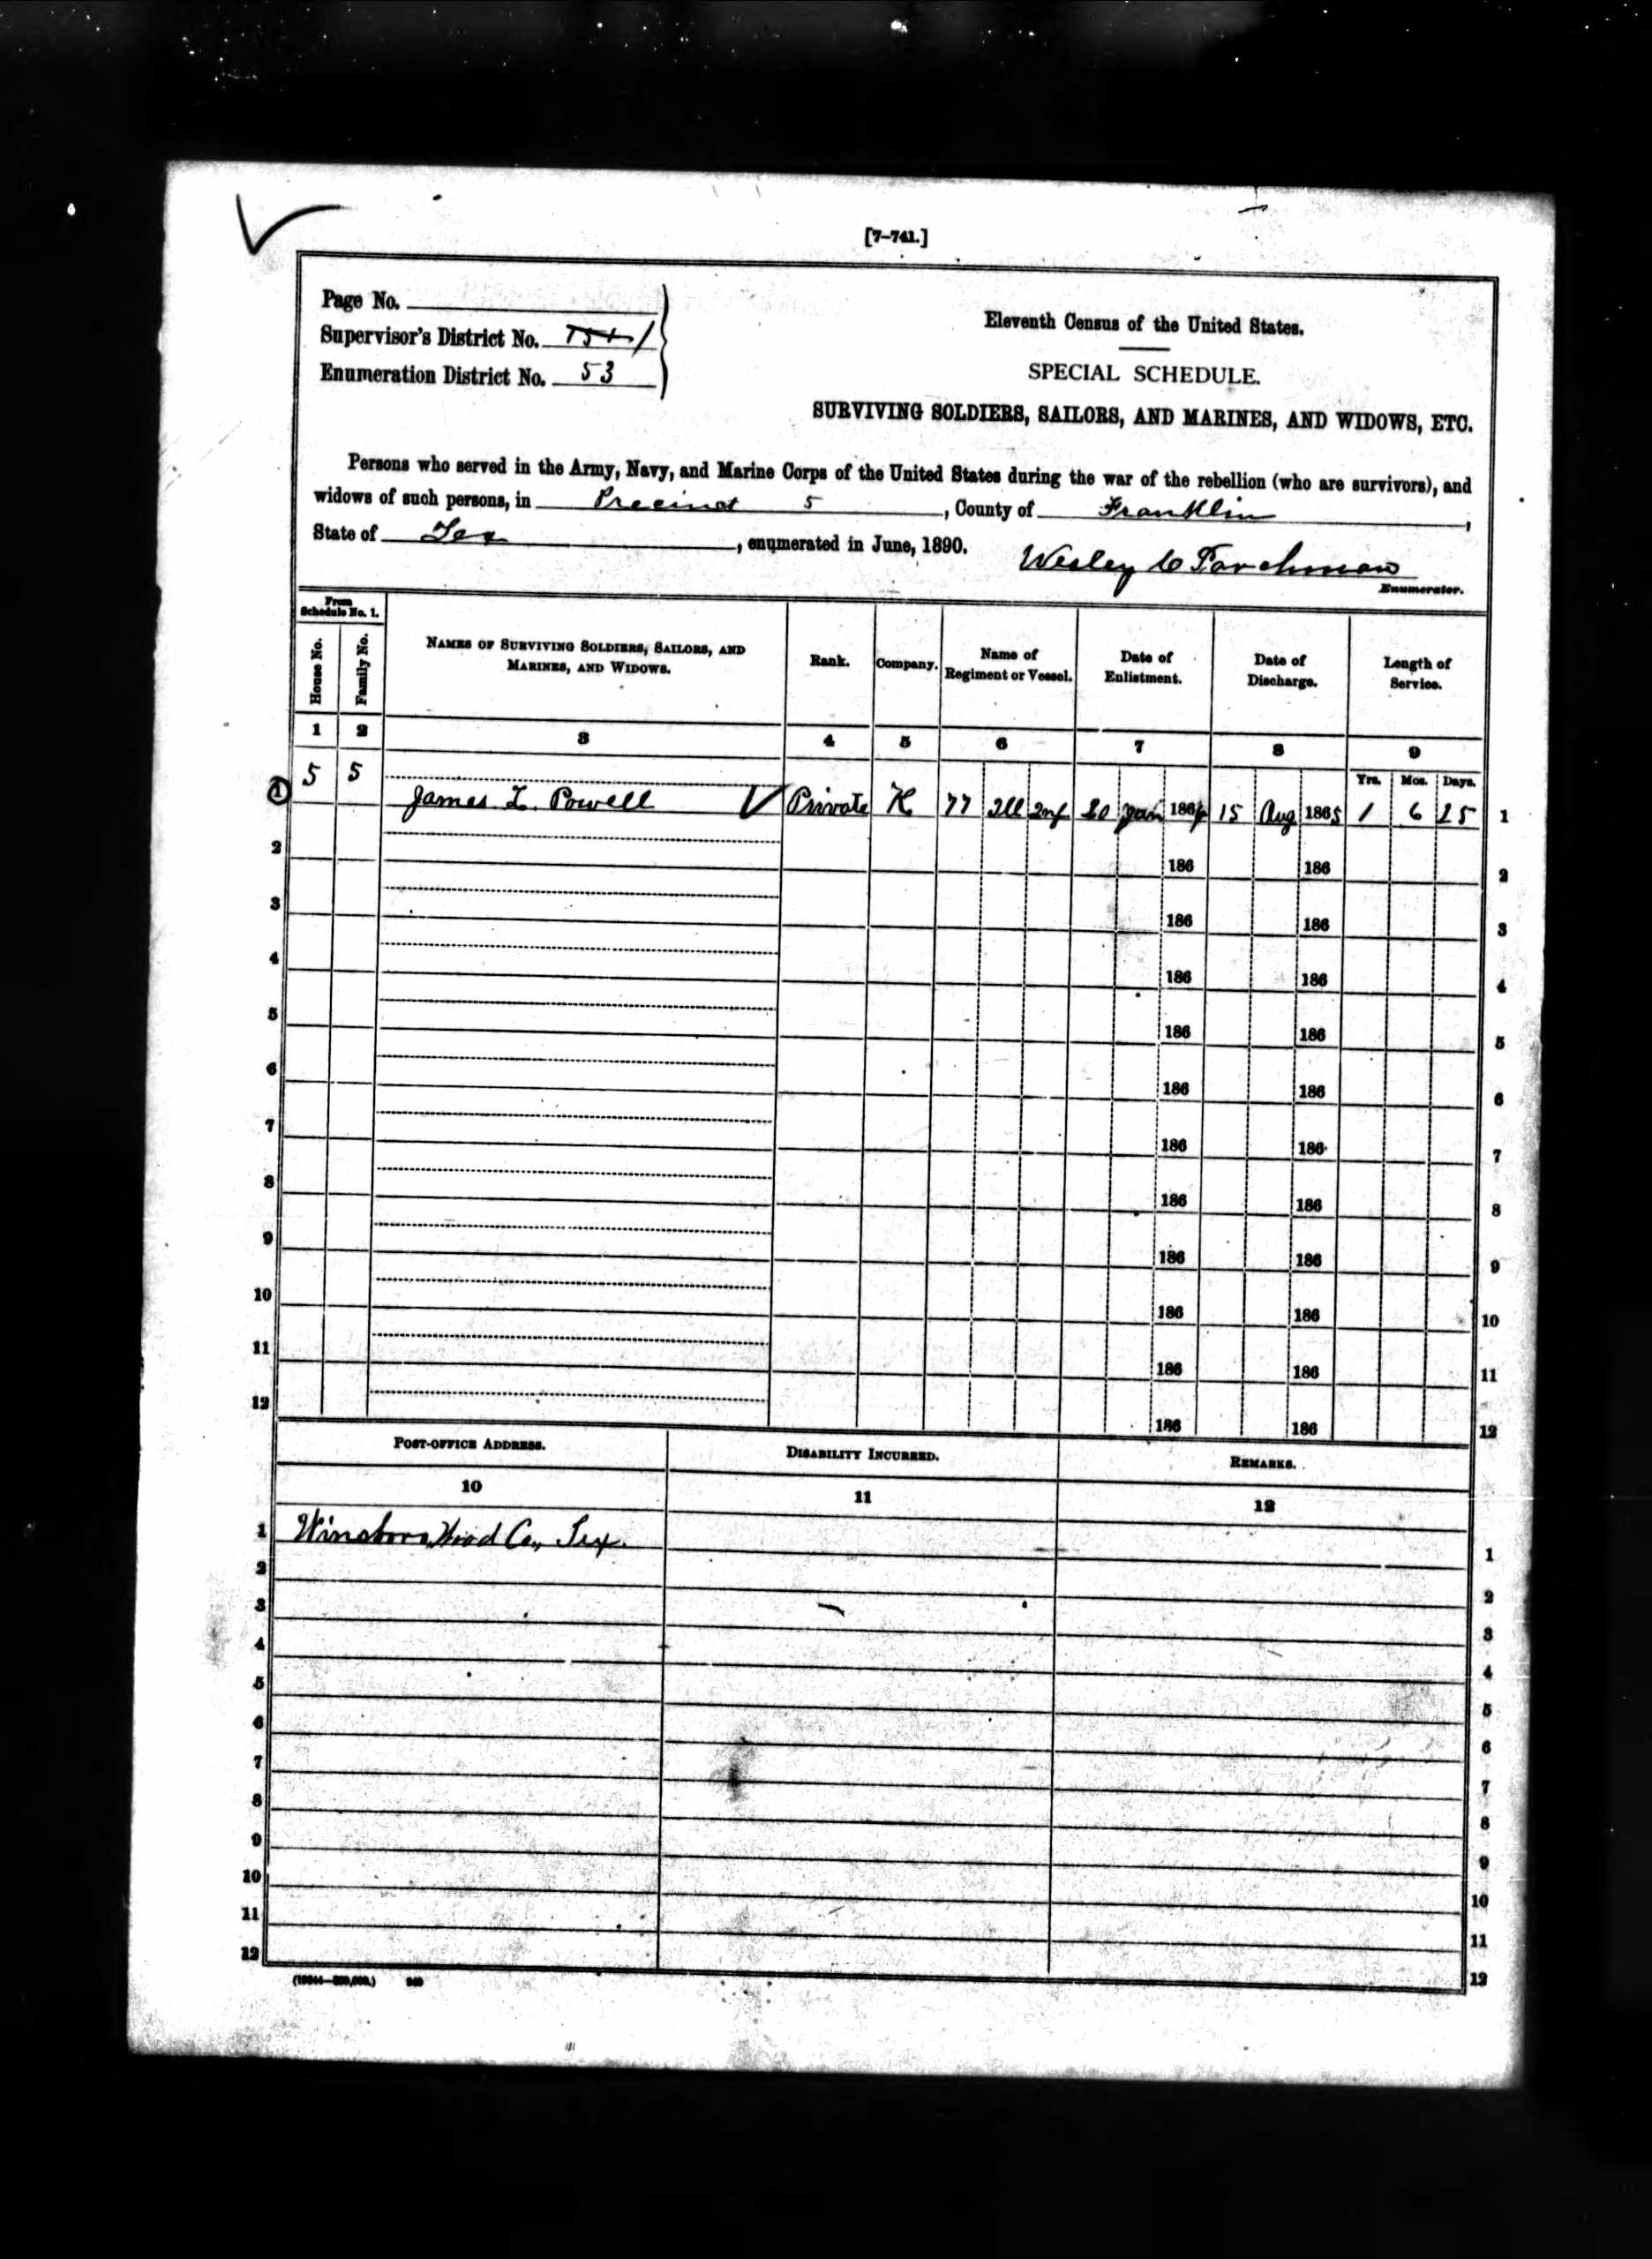 [7–741.]
Page No.
Supervisor's District No. 1
Enumeration District No. 53
Eleventh Census of the United States.
SPECIAL SCHEDULE.
SURVIVING SOLDIERS, SAILORS, AND MARINES, AND WIDOWS, ETC.
Persons who served in the Army, Navy, and Marine Corps of the United States during the war of the rebellion (who are survivors), and
widows of such persons, in Precinct 5, County of Franklin,
State of Tex, enumerated in June, 1890.
Wesley C Parchman
Enumerator.
From Schedule No. 1.
House No. Family No. NAMES OF SURVIVING SOLDIERS, SAILORS, AND MARINES, AND WIDOWS. Rank. Company. Name of Regiment or Vessel. Date of Enlistment. Date of Discharge. Length of Service.
1 2 3 4 5 6 7 8 9
Yrs. Mos. Days.
1 5 5 James L. Powell Private K 77 Ill Inf 20 Jan 1864 15 Aug 1865 1 6 25 1
2 186 186 2
3 186 186 3
4 186 186 4
5 186 186 5
6 186 186 6
7 186 186 7
8 186 186 8
9 186 186 9
10 186 186 10
11 186 186 11
12 186 186 12
POST-OFFICE ADDRESS. DISABILITY INCURRED. REMARKS.
10 11 12
1 Winsboro, Wood Co., Tex. 1
2 2
3 3
4 4
5 5
6 6
7 7
8 8
9 9
10 10
11 11
12 12